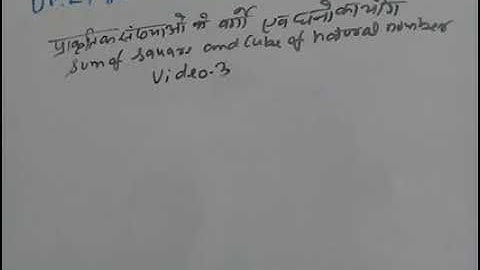 प्राकृतिक संख्याओं के वर्गों एवं घनों का योग
Sum of square and Cube of natural number
Video-3